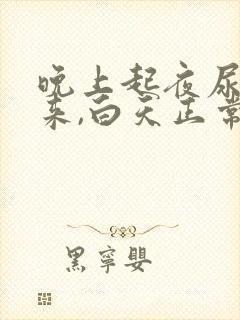 晚上起夜尿
来,白天正常
黑寧嬰